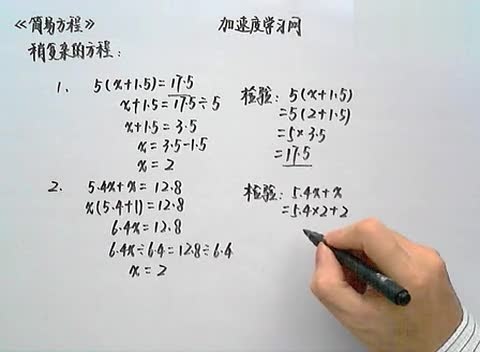 《简易方程》 加速度学习网
稍复杂的方程:
1. 5(x+1.5)=17.5
x+1.5=17.5÷5
x+1.5=3.5
x=3.5-1.5
x=2
检验: 5(x+1.5)
=5(2+1.5)
=5×3.5
=17.5
2. 5.4x+x=12.8
x(5.4+1)=12.8
6.4x=12.8
6.4x÷6.4=12.8÷6.4
x=2
检验: 5.4x+x
=5.4×2+2